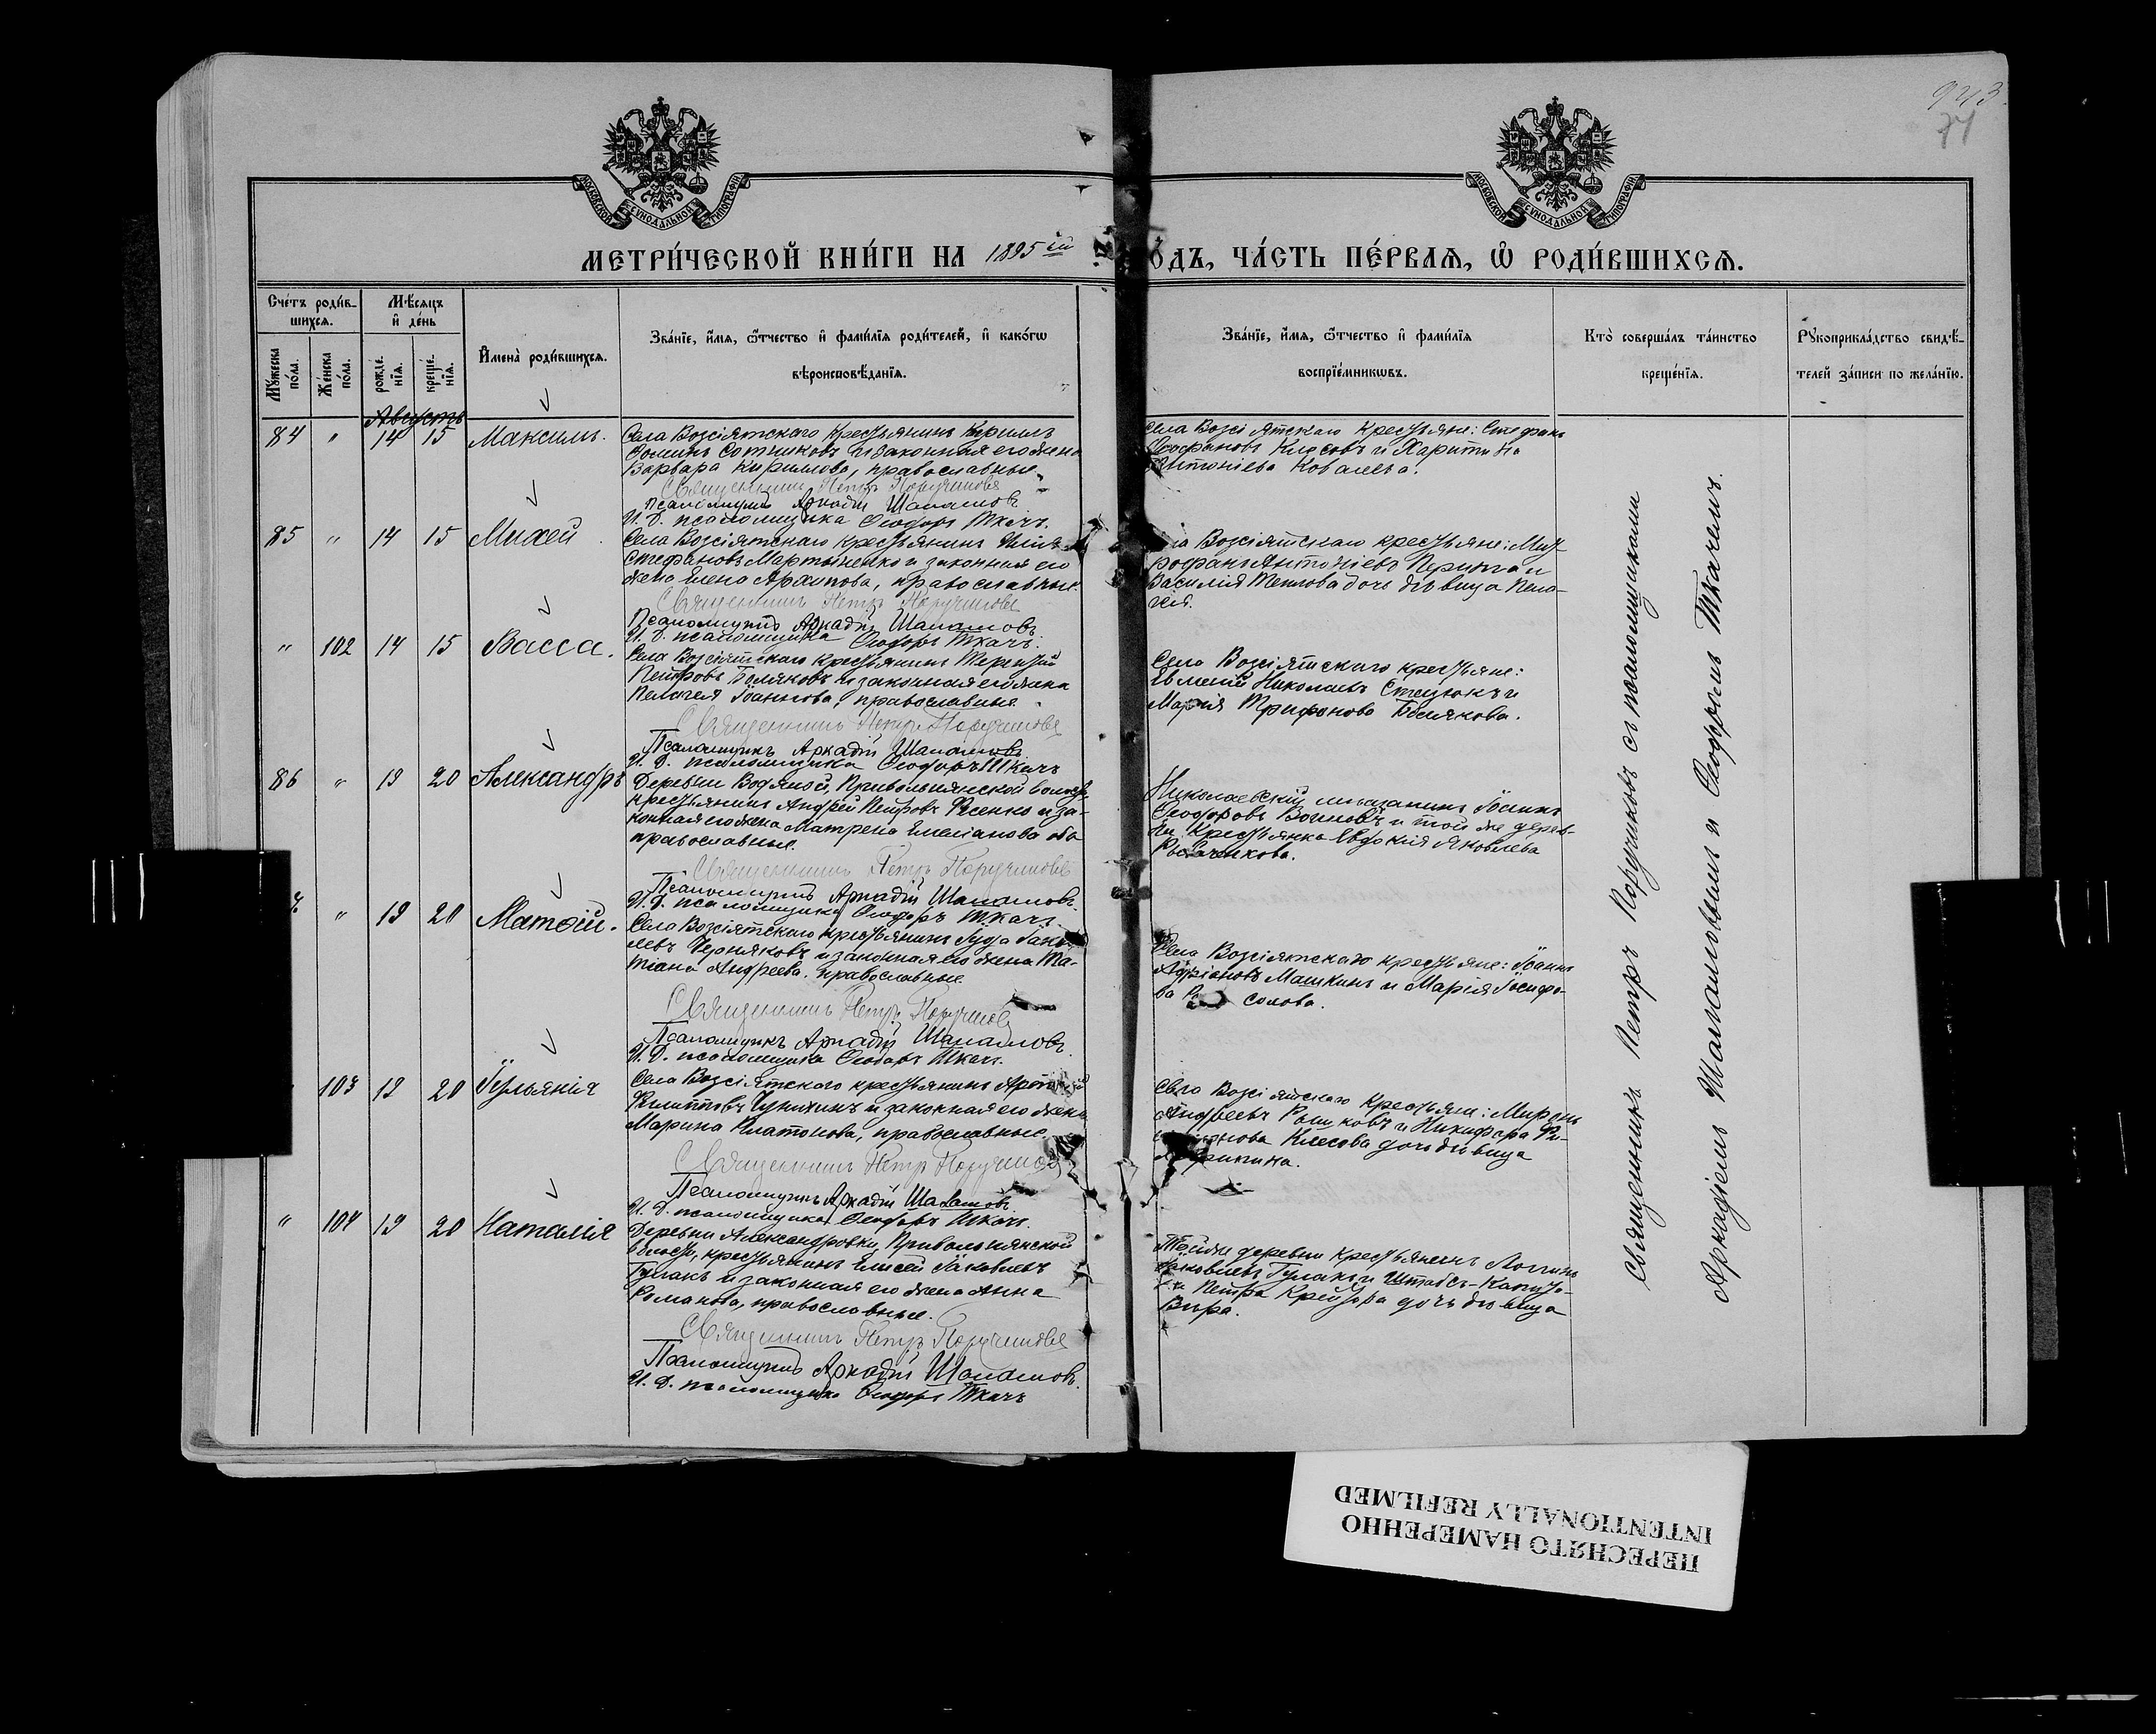 943.
74
МОСКОВСКОЙ СѴНОДАЛЬНОЙ ТИПОГРАФІИ
МОСКОВСКОЙ СѴНОДАЛЬНОЙ ТИПОГРАФІИ
МЕТРИ́ЧЕСКОЙ КНИ́ГИ НА 1895 ый ГОДЪ, ЧА́СТЬ ПЕ́РВАЯ, Ѡ РОДИ́ВШИХСЯ.
Сче́тъ роди́в-
шихся.
Мѣ́сяцъ
и де́нь
Му́жеска по́ла.
Же́нска по́ла.
рожде́нїя.
креще́нїя.
И҆мена̀ роди́вшихся.
Зва́нїе, и҆́мя, ѻ҆́тчество и҆ фами́лїя роди́телей, и҆ како́гѡ
вѣроисповѣ́данїя.
Зва́нїе, и҆́мя, ѻ҆́тчество и҆ фами́лїя
воспрїе́мникѡвъ.
Кто̀ соверша́лъ та́инство
креще́нїя.
Рꙋкоприкла́дство свидѣ́-
телей за́писи по жела́нїю.
Августъ
84 " 14 15 Максимъ.
Села Возсіятскаго крестьянинъ Кирилъ
Ѳоминъ Сотниковъ и законная его жена
Варвара Кирилова, православные.
Священникъ Петръ Поручиковъ
Псаломщикъ Аркадій Шаламовъ
И. Д. псаломщика Ѳеодоръ Ткачъ.
Села Возсіятскаго крестьяне: Стефанъ
Ѳеофановъ Клесовъ и Харитина
Антоніева Ковалева.
85 " 14 15 Михей
Села Возсіятскаго крестьянинъ Илія
Стефановъ Мартыненко и законная его
жена Елена Архипова, православные.
Священникъ Петръ Поручиковъ
Псаломщикъ Аркадій Шаламовъ
И. Д. псаломщика Ѳеодоръ Ткачъ.
Села Возсіятскаго крестьяне: Мит-
рофанъ Антоніевъ и
Василія Теплова дочь дѣвица Пела-
гія.
" 102 14 15 Васса.
Села Возсіятскаго крестьянинъ Терентій
Петровъ Поляковъ и законная его жена
Пелагея Іоаннова, православные.
Священникъ Петръ Поручиковъ
Псаломщикъ Аркадій Шаламовъ
И. Д. псаломщика Ѳеодоръ Ткачъ
Села Возсіятскаго крестьяне:
Евменій Николаевъ Стецюкъ и
Марія Трифонова Полякова.
86 " 19 20 Александръ
Деревни Водяной, Привольнянской волости,
крестьянинъ Андрей Петровъ и за-
конная его жена Матрена Емеліанова оба
православные.
Священникъ Петръ Поручиковъ
Псаломщикъ Аркадій Шаламовъ
И. Д. псаломщика Ѳеодоръ Ткачъ.
Николаевскій мѣщанинъ Іоаннъ
Ѳеодоровъ Воиновъ и той же дерев-
ни крестьянка Евдокія Яковлева
" 19 20 Матѳій.
Села Возсіятскаго крестьянинъ Іуда Іаков-
левъ Черняковъ и законная его жена Та-
тіана Андреева, православные.
Священникъ Петръ Поручиковъ
Псаломщикъ Аркадій Шаламовъ.
И. Д. псаломщика Ѳеодоръ Ткачъ.
Села Возсіятскаго крестьяне: Іоаннъ
Адріановъ Машкинъ и Марія Іосифо-
ва
103 19 20 Іуліанія
Села Возсіятскаго крестьянинъ
Филипповъ Чунихинъ и законная его жена
Марина Платонова, православные.
Священникъ Петръ Поручиковъ
Псаломщикъ Аркадій Шаламовъ
И. Д. псаломщика Ѳеодоръ Ткачъ.
Села Возсіятскаго крестьяне: Миронъ
Андреевъ и Никифора Фи-
Клесова дочь дѣвица
" 104 19 20 Наталія
Деревни Александровки, Привольнянской
волости, крестьянинъ Елисей Іаковлевъ
Гулакъ и законная его жена Анна
Романова, православные.
Священникъ Петръ Поручиковъ
Псаломщикъ Аркадій Шаламовъ.
И. Д. псаломщика Ѳеодоръ Ткачъ
Той же деревни крестьянинъ Логинъ
Іаковлевъ Гулакъ и Штабсъ-Капита-
на Петра дочь дѣвица
Вѣра.
Священникъ Петръ Поручиковъ съ псаломщиками
Аркадіемъ Шаламовымъ и Ѳеодоромъ Ткачемъ.
ПЕРЕСНЯТО НАМЕРЕННО
INTENTIONALLY REFILMED